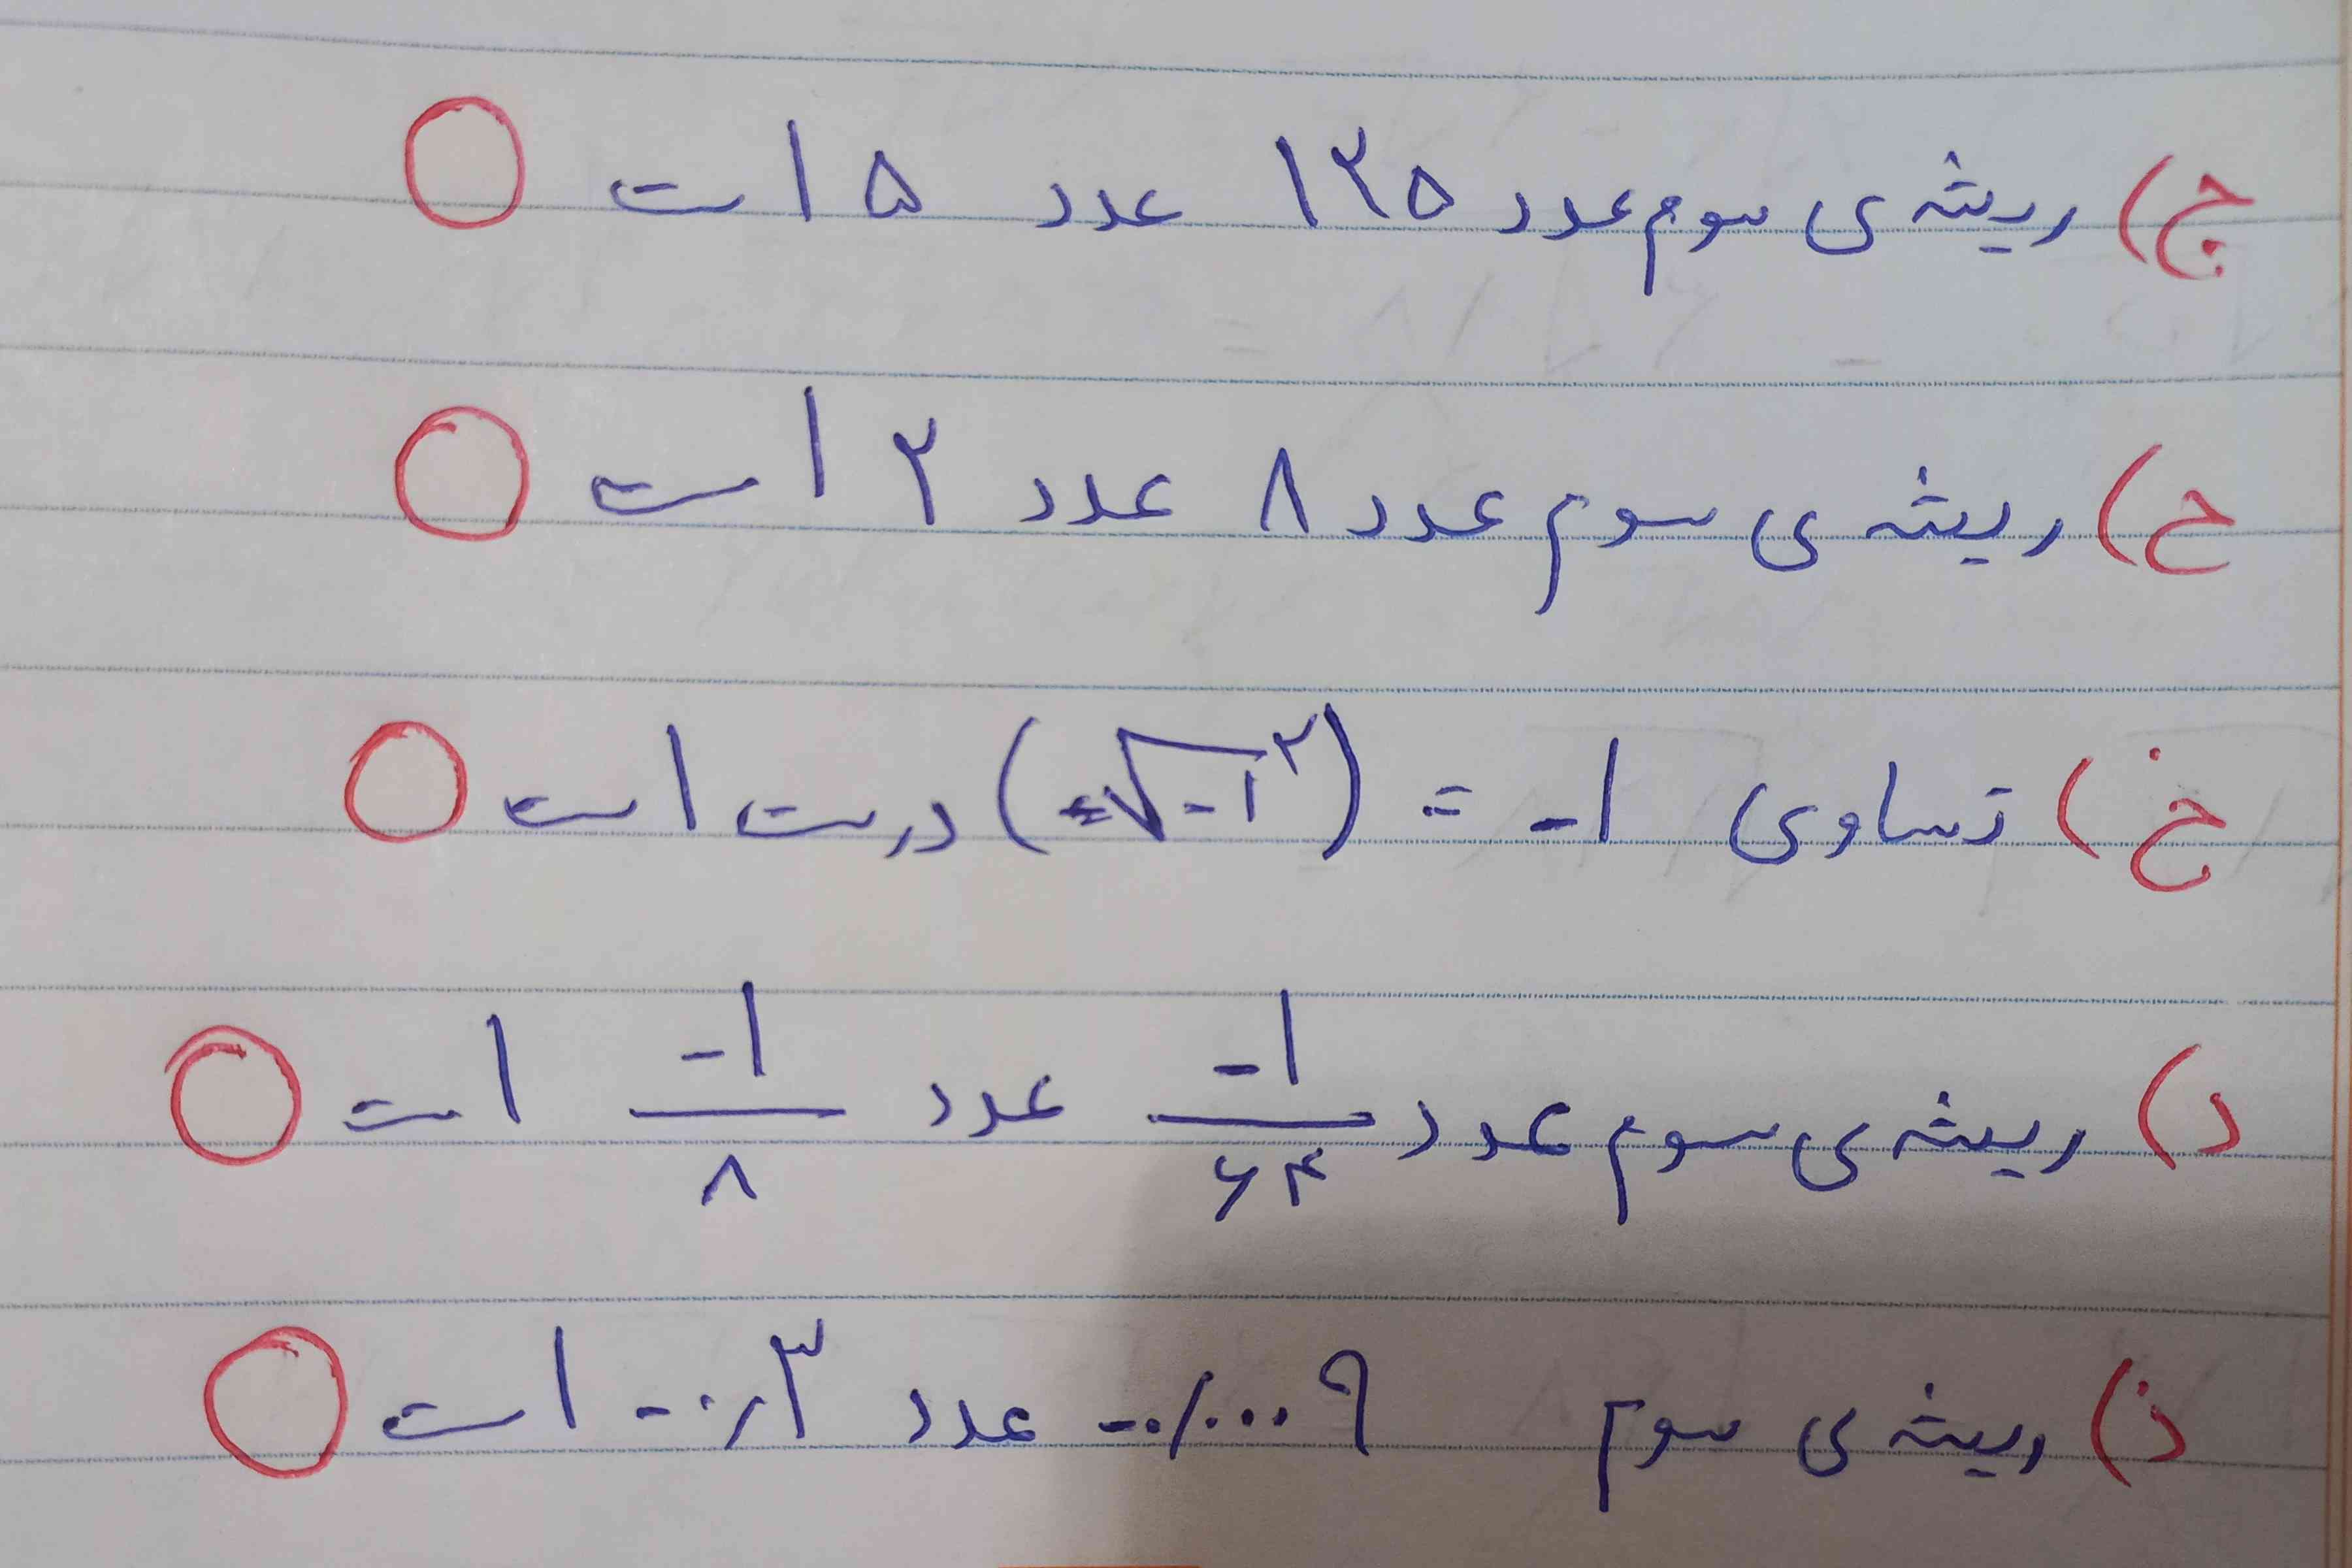 ج) ریشه ی سوم عدد ۱۲۵ عدد ۵ است
ح) ریشه ی سوم عدد ۸ عدد ۲ است
خ) تساوی -۱ = (√-۱²) درست است
د) ریشه ی سوم عدد -۱/۶۴ عدد -۱/۸ است
ذ) ریشه ی سوم -۰/۰۰۰۹ عدد -۰/۰۳ است